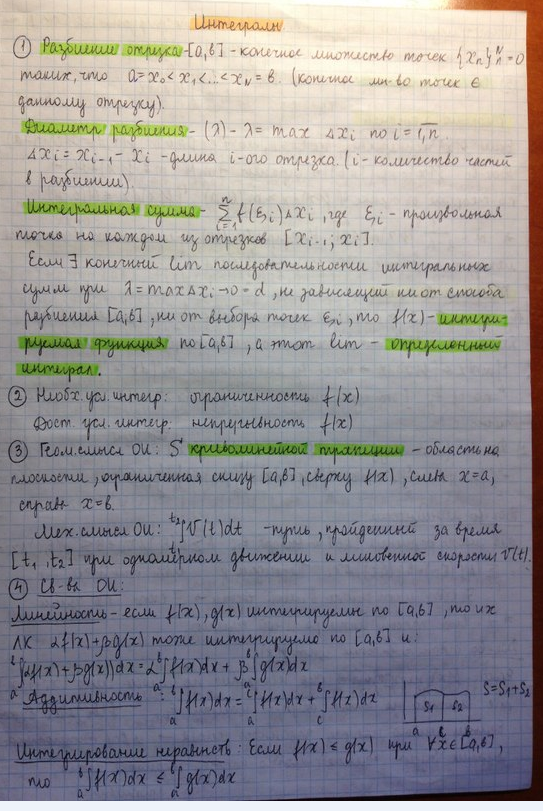 Интегралы
① Разбиение отрезка - [a,b] - конечное множество точек {xₙ}ᴺₙ₌₀
таких, что a=x₀<x₁<...<x_N=b. (конечное мн-во точек ∈
данному отрезку).
Диаметр разбиения - (λ) - λ = max Δxᵢ по i = 1,n.
Δxᵢ = xᵢ₋₁ - xᵢ - длина i-ого отрезка. (i - количество частей
в разбиении).
Интегральная сумма - ⁿ∑ᵢ₌₁ f(ξᵢ)Δxᵢ, где ξᵢ - произвольная
точка на каждом из отрезков [xᵢ₋₁; xᵢ].
Если ∃ конечный lim последовательности интегральных
сумм при λ = maxΔxᵢ→0 = d, не зависящий ни от способа
разбиения [a,b], ни от выбора точек ξᵢ, то f(x) - интегри-
руемая функция по [a,b], а этот lim - определенный
интеграл.
② Необх. усл. интегр: ограниченность f(x)
Дост. усл. интегр: непрерывность f(x)
③ Геом. смысл ОИ: S криволинейной трапеции - область на
плоскости, ограниченная снизу [a,b], сверху f(x), слева x=a,
справа x=b.
Мех. смысл ОИ: ᵗ²∫ₜ₁ V(t)dt - путь, пройденный за время
[t₁, t₂] при одномерном движении и мгновенной скорости V(t).
④ Св-ва ОИ:
Линейность - если f(x), g(x) интегрируемы по [a,b], то их
ЛК αf(x)+βg(x) тоже интегрируемо по [a,b] и:
ᵇ∫ₐ(αf(x)+βg(x))dx = α ᵇ∫ₐ f(x)dx + β ᵇ∫ₐ g(x)dx
Аддитивность: ᵇ∫ₐ f(x)dx = ᶜ∫ₐ f(x)dx + ᵇ∫c f(x)dx
S=S₁+S₂
S₁ S₂
a b
Интегрирование неравенств: Если f(x) ≤ g(x) при ∀x∈[a,b],
то ᵇ∫ₐ f(x)dx ≤ ᵇ∫ₐ g(x)dx